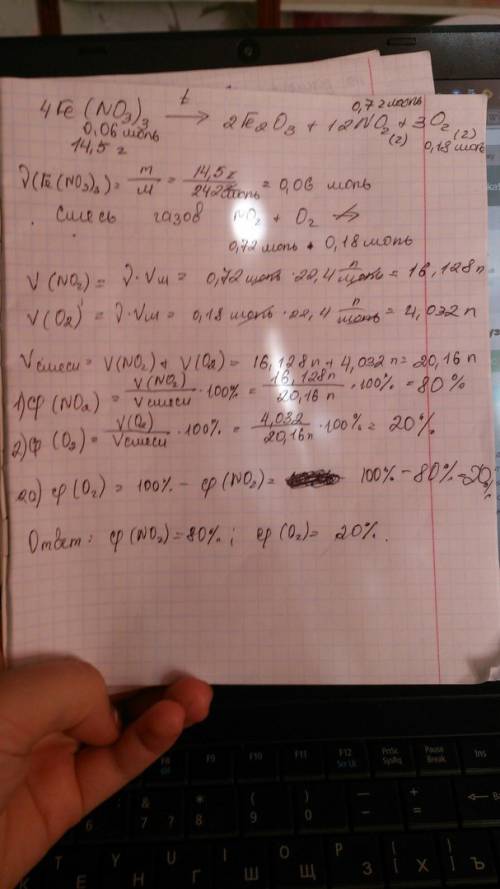 4Fe(NO₃)₃ →ᵗ 2Fe₂O₃ + 12NO₂ + 3O₂
0,72 моль
0,06 моль (г) (г)
14,5 г 0,18 моль
ν(Fe(NO₃)₃) = m/M = 14,5г/242г/моль = 0,06 моль
Смесь газов NO₂ + O₂
0,72 моль 0,18 моль
V(NO₂) = ν·Vм = 0,72 моль · 22,4 л/моль = 16,128 л
V(O₂) = ν·Vм = 0,18 моль · 22,4 л/моль = 4,032 л
Vсмеси = V(NO₂) + V(O₂) = 16,128л + 4,032л = 20,16 л
1) φ(NO₂) = V(NO₂)/Vсмеси · 100% = 16,128л/20,16л · 100% = 80%
2) φ(O₂) = V(O₂)/Vсмеси · 100% = 4,032/20,16л · 100% = 20%
2а) φ(O₂) = 100% − φ(NO₂) = 100% − 80% = 20%
Ответ: φ(NO₂) = 80%; φ(O₂) = 20%.
F8
F9
F10
F11
F12
Scr Lk
PrtSc
SysRq
Pause
Break
Ins
6 & 7 ? * 8 ( 9 ) 0 _ - + =
T Y U I O P
Е Н Г Ш Щ З Х Ъ